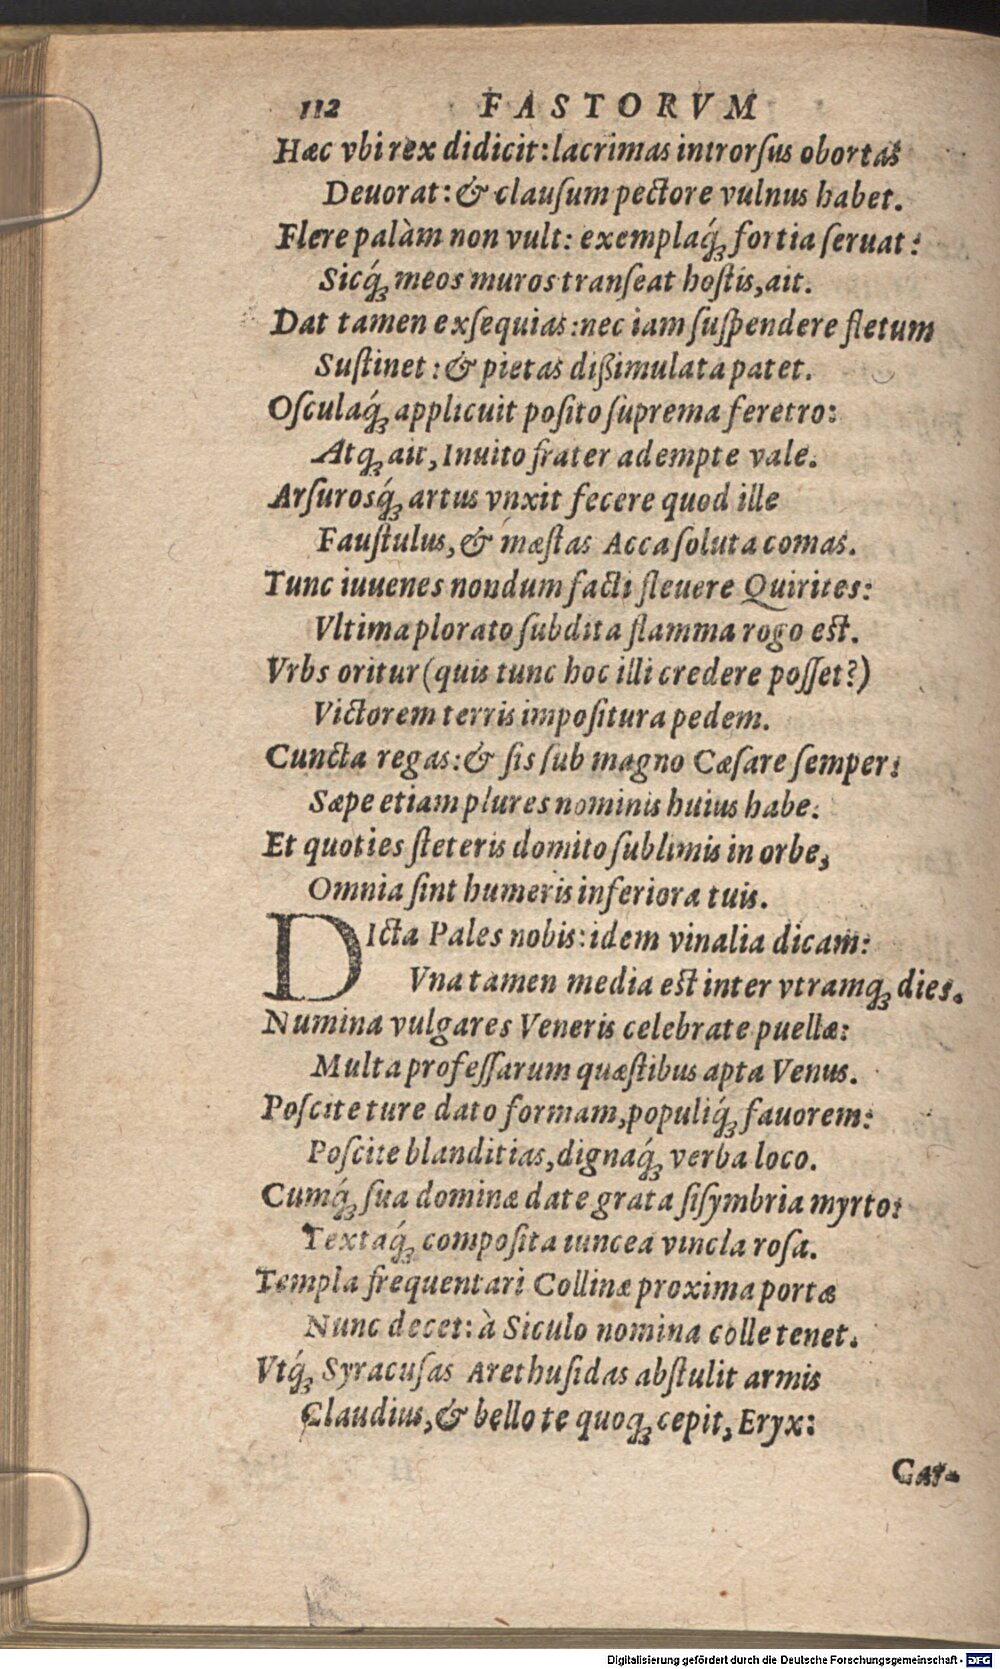 112 FASTORVM
Hæc vbi rex didicit: lacrimas introrſus obortas
Deuorat: & clauſum pectore vulnus habet.
Flere palàm non vult: exemplaq́ꝫ fortia ſeruat:
Sicq́ꝫ meos muros tranſeat hoſtis, ait.
Dat tamen exſequias: nec iam ſuſpendere fletum
Suſtinet: & pietas dißimulata patet.
Oſculaq́ꝫ applicuit poſito ſuprema feretro:
Atqꝫ ait, Inuito frater adempte vale.
Arſurosq́ꝫ artus vnxit fecere quod ille
Fauſtulus, & mæſtas Acca ſoluta comas.
Tunc iuuenes nondum facti fleuere Quirites:
Vltima plorato ſubdita flamma rogo eſt.
Vrbs oritur (quis tunc hoc illi credere poſſet?)
Victorem terris impoſitura pedem.
Cuncta regas: & ſis ſub magno Cæſare ſemper:
Sæpe etiam plures nominis huius habe.
Et quoties ſteteris domito ſublimis in orbe,
Omnia ſint humeris inferiora tuis.
DIcta Pales nobis: idem vinalia dicam:
Vna tamen media eſt inter vtramqꝫ dies.
Numina vulgares Veneris celebrate puellæ:
Multa profeſſarum quæſtibus apta Venus.
Poſcite ture dato formam, populiq́ꝫ fauorem:
Poſcite blanditias, dignaq́ꝫ verba loco.
Cumq́ꝫ ſua dominæ date grata ſiſymbria myrto:
Textaq́ꝫ compoſita iuncea vincla roſa.
Templa frequentari Collinæ proxima portæ
Nunc decet: à Siculo nomina colle tenet.
Vtq́ꝫ Syracuſas Arethuſidas abſtulit armis
Claudius, & bello te quoqꝫ cepit, Eryx:
Car-
Digitalisierung gefördert durch die Deutsche Forschungsgemeinschaft - DFG